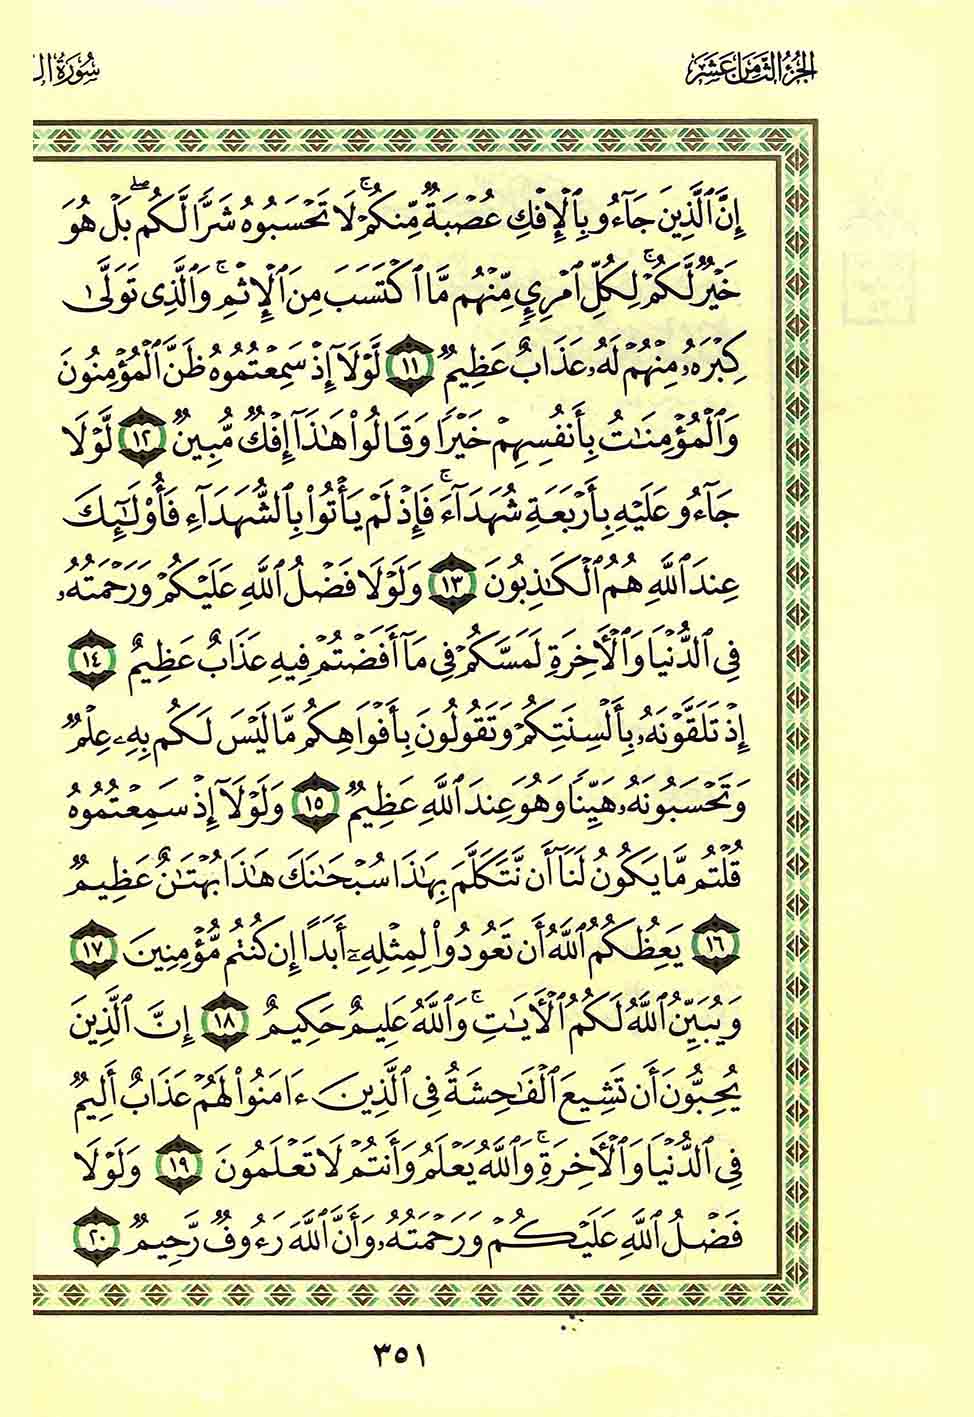 الجزء الثامن عشر
سورة ال
إِنَّ ٱلَّذِينَ جَآءُو بِٱلْإِفْكِ عُصْبَةٌ مِّنكُمْ ۚ لَا تَحْسَبُوهُ شَرًّا لَّكُم ۖ بَلْ هُوَ
خَيْرٌ لَّكُمْ ۚ لِكُلِّ ٱمْرِئٍ مِّنْهُم مَّا ٱكْتَسَبَ مِنَ ٱلْإِثْمِ ۚ وَٱلَّذِى تَوَلَّىٰ
كِبْرَهُۥ مِنْهُمْ لَهُۥ عَذَابٌ عَظِيمٌ ١١ لَّوْلَآ إِذْ سَمِعْتُمُوهُ ظَنَّ ٱلْمُؤْمِنُونَ
وَٱلْمُؤْمِنَـٰتُ بِأَنفُسِهِمْ خَيْرًا وَقَالُوا۟ هَـٰذَآ إِفْكٌ مُّبِينٌ ١٢ لَّوْلَا
جَآءُو عَلَيْهِ بِأَرْبَعَةِ شُهَدَآءَ ۚ فَإِذْ لَمْ يَأْتُوا۟ بِٱلشُّهَدَآءِ فَأُو۟لَـٰٓئِكَ
عِندَ ٱللَّهِ هُمُ ٱلْكَـٰذِبُونَ ١٣ وَلَوْلَا فَضْلُ ٱللَّهِ عَلَيْكُمْ وَرَحْمَتُهُۥ
فِى ٱلدُّنْيَا وَٱلْـَٔاخِرَةِ لَمَسَّكُمْ فِى مَآ أَفَضْتُمْ فِيهِ عَذَابٌ عَظِيمٌ ١٤
إِذْ تَلَقَّوْنَهُۥ بِأَلْسِنَتِكُمْ وَتَقُولُونَ بِأَفْوَاهِكُم مَّا لَيْسَ لَكُم بِهِۦ عِلْمٌ
وَتَحْسَبُونَهُۥ هَيِّنًا وَهُوَ عِندَ ٱللَّهِ عَظِيمٌ ١٥ وَلَوْلَآ إِذْ سَمِعْتُمُوهُ
قُلْتُم مَّا يَكُونُ لَنَآ أَن نَّتَكَلَّمَ بِهَـٰذَا سُبْحَـٰنَكَ هَـٰذَا بُهْتَـٰنٌ عَظِيمٌ
١٦ يَعِظُكُمُ ٱللَّهُ أَن تَعُودُوا۟ لِمِثْلِهِۦٓ أَبَدًا إِن كُنتُم مُّؤْمِنِينَ ١٧
وَيُبَيِّنُ ٱللَّهُ لَكُمُ ٱلْـَٔايَـٰتِ ۚ وَٱللَّهُ عَلِيمٌ حَكِيمٌ ١٨ إِنَّ ٱلَّذِينَ
يُحِبُّونَ أَن تَشِيعَ ٱلْفَـٰحِشَةُ فِى ٱلَّذِينَ ءَامَنُوا۟ لَهُمْ عَذَابٌ أَلِيمٌ
فِى ٱلدُّنْيَا وَٱلْـَٔاخِرَةِ ۚ وَٱللَّهُ يَعْلَمُ وَأَنتُمْ لَا تَعْلَمُونَ ١٩ وَلَوْلَا
فَضْلُ ٱللَّهِ عَلَيْكُمْ وَرَحْمَتُهُۥ وَأَنَّ ٱللَّهَ رَءُوفٌ رَّحِيمٌ ٢٠
٣٥١